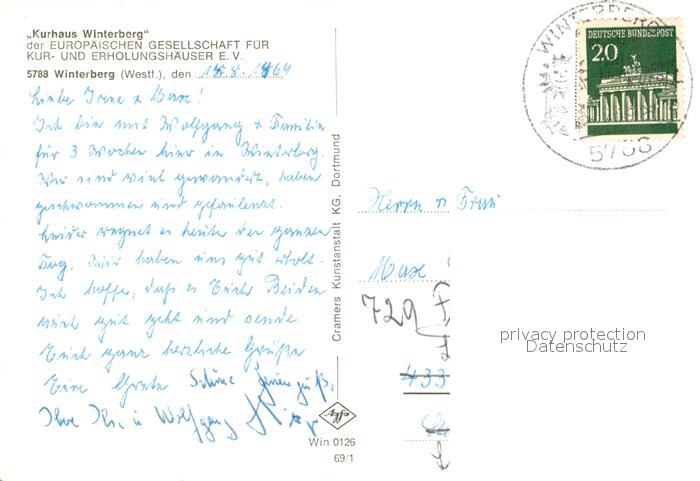 „Kurhaus Winterberg"
der EUROPÄISCHEN GESELLSCHAFT FÜR
KUR- UND ERHOLUNGSHÄUSER E. V.
5788 Winterberg (Westf.), den 8. 1969
Ich bin mit Wolfgang + Familie
für 3 Wochen hier in Winterberg.
Wir sind viel gewandert, haben
geschwommen und gefaulenzt.
Leider regnet es heute den ganzen
Tag. Wir haben uns gut erholt.
Ich hoffe, daß es Euch Beiden
auch gut geht und sende
Euch ganz herzliche Grüße
Eure Grete Schöne
Wolfgang
Cramers Kunstanstalt KG. Dortmund
Agfa
Win 0126
69/1
WINTERBERG
5788
DEUTSCHE BUNDESPOST
20
Herrn u Frau
729
433
privacy protection
Datenschutz